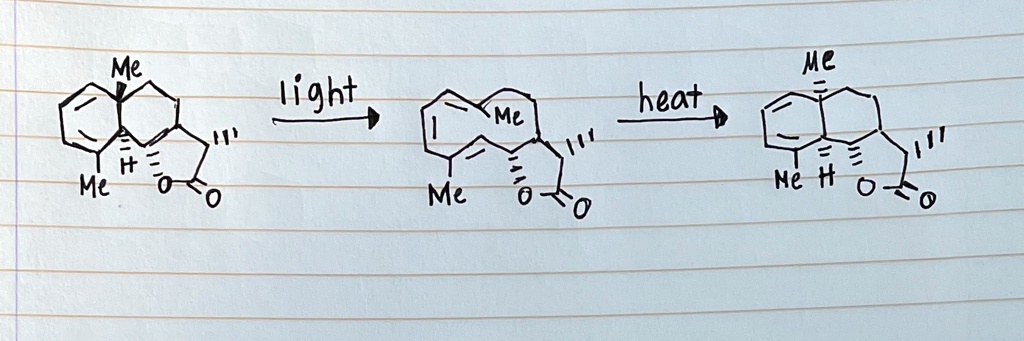 Me
light
heat
Me
Me
H
O
O
Me
Me
O
O
Me
H
O
O